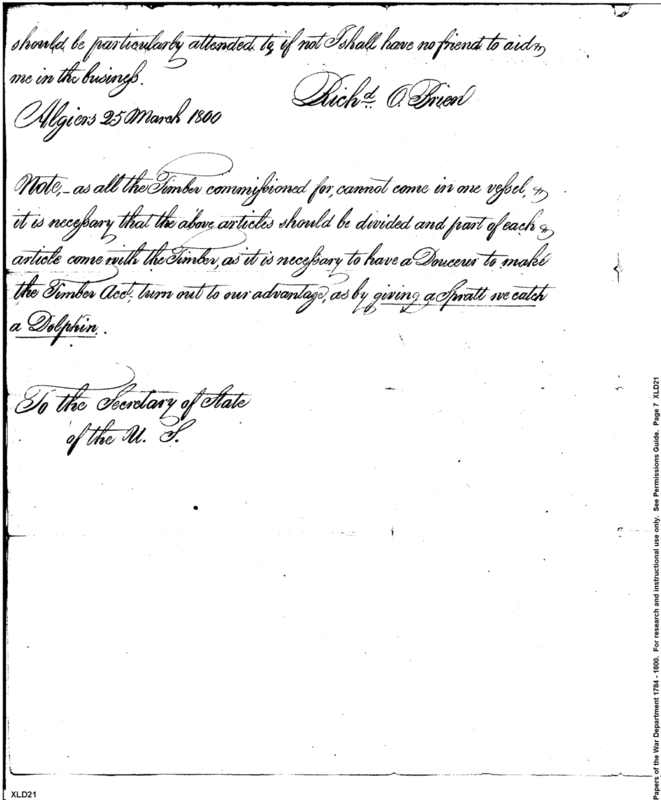 should be particularly attended to, if not I shall have no friend to aid
me in the business.
Richd. O. Brien
Algiers 25 March 1800
Note,- as all the Timber commissioned for, cannot come in one vessel,
it is necessary that the above articles should be divided and part of each
article come with the Timber, as it is necessary to have a Douceur to make
the Timber Acct. turn out to our advantage, as by giving a Spratt we catch
a Dolphin.
To the Secretary of State
of the U. S.
Papers of the War Department 1784 - 1800. For research and instructional use only. See Permissions Guide. Page 7 XLD21
XLD21